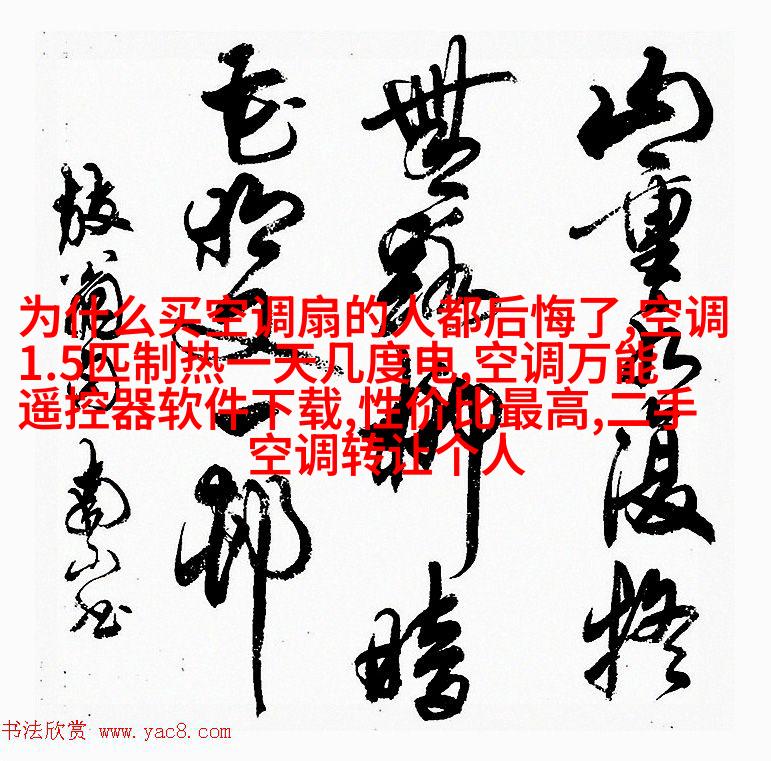 山重水復疑
無路柳暗
花明又一村
为什么买空调扇的人都后悔了,空调
1.5匹制热一天几度电,空调万能
遥控器软件下载,性价比最高,二手
空调转让个人
书法欣赏 www.yac8.com